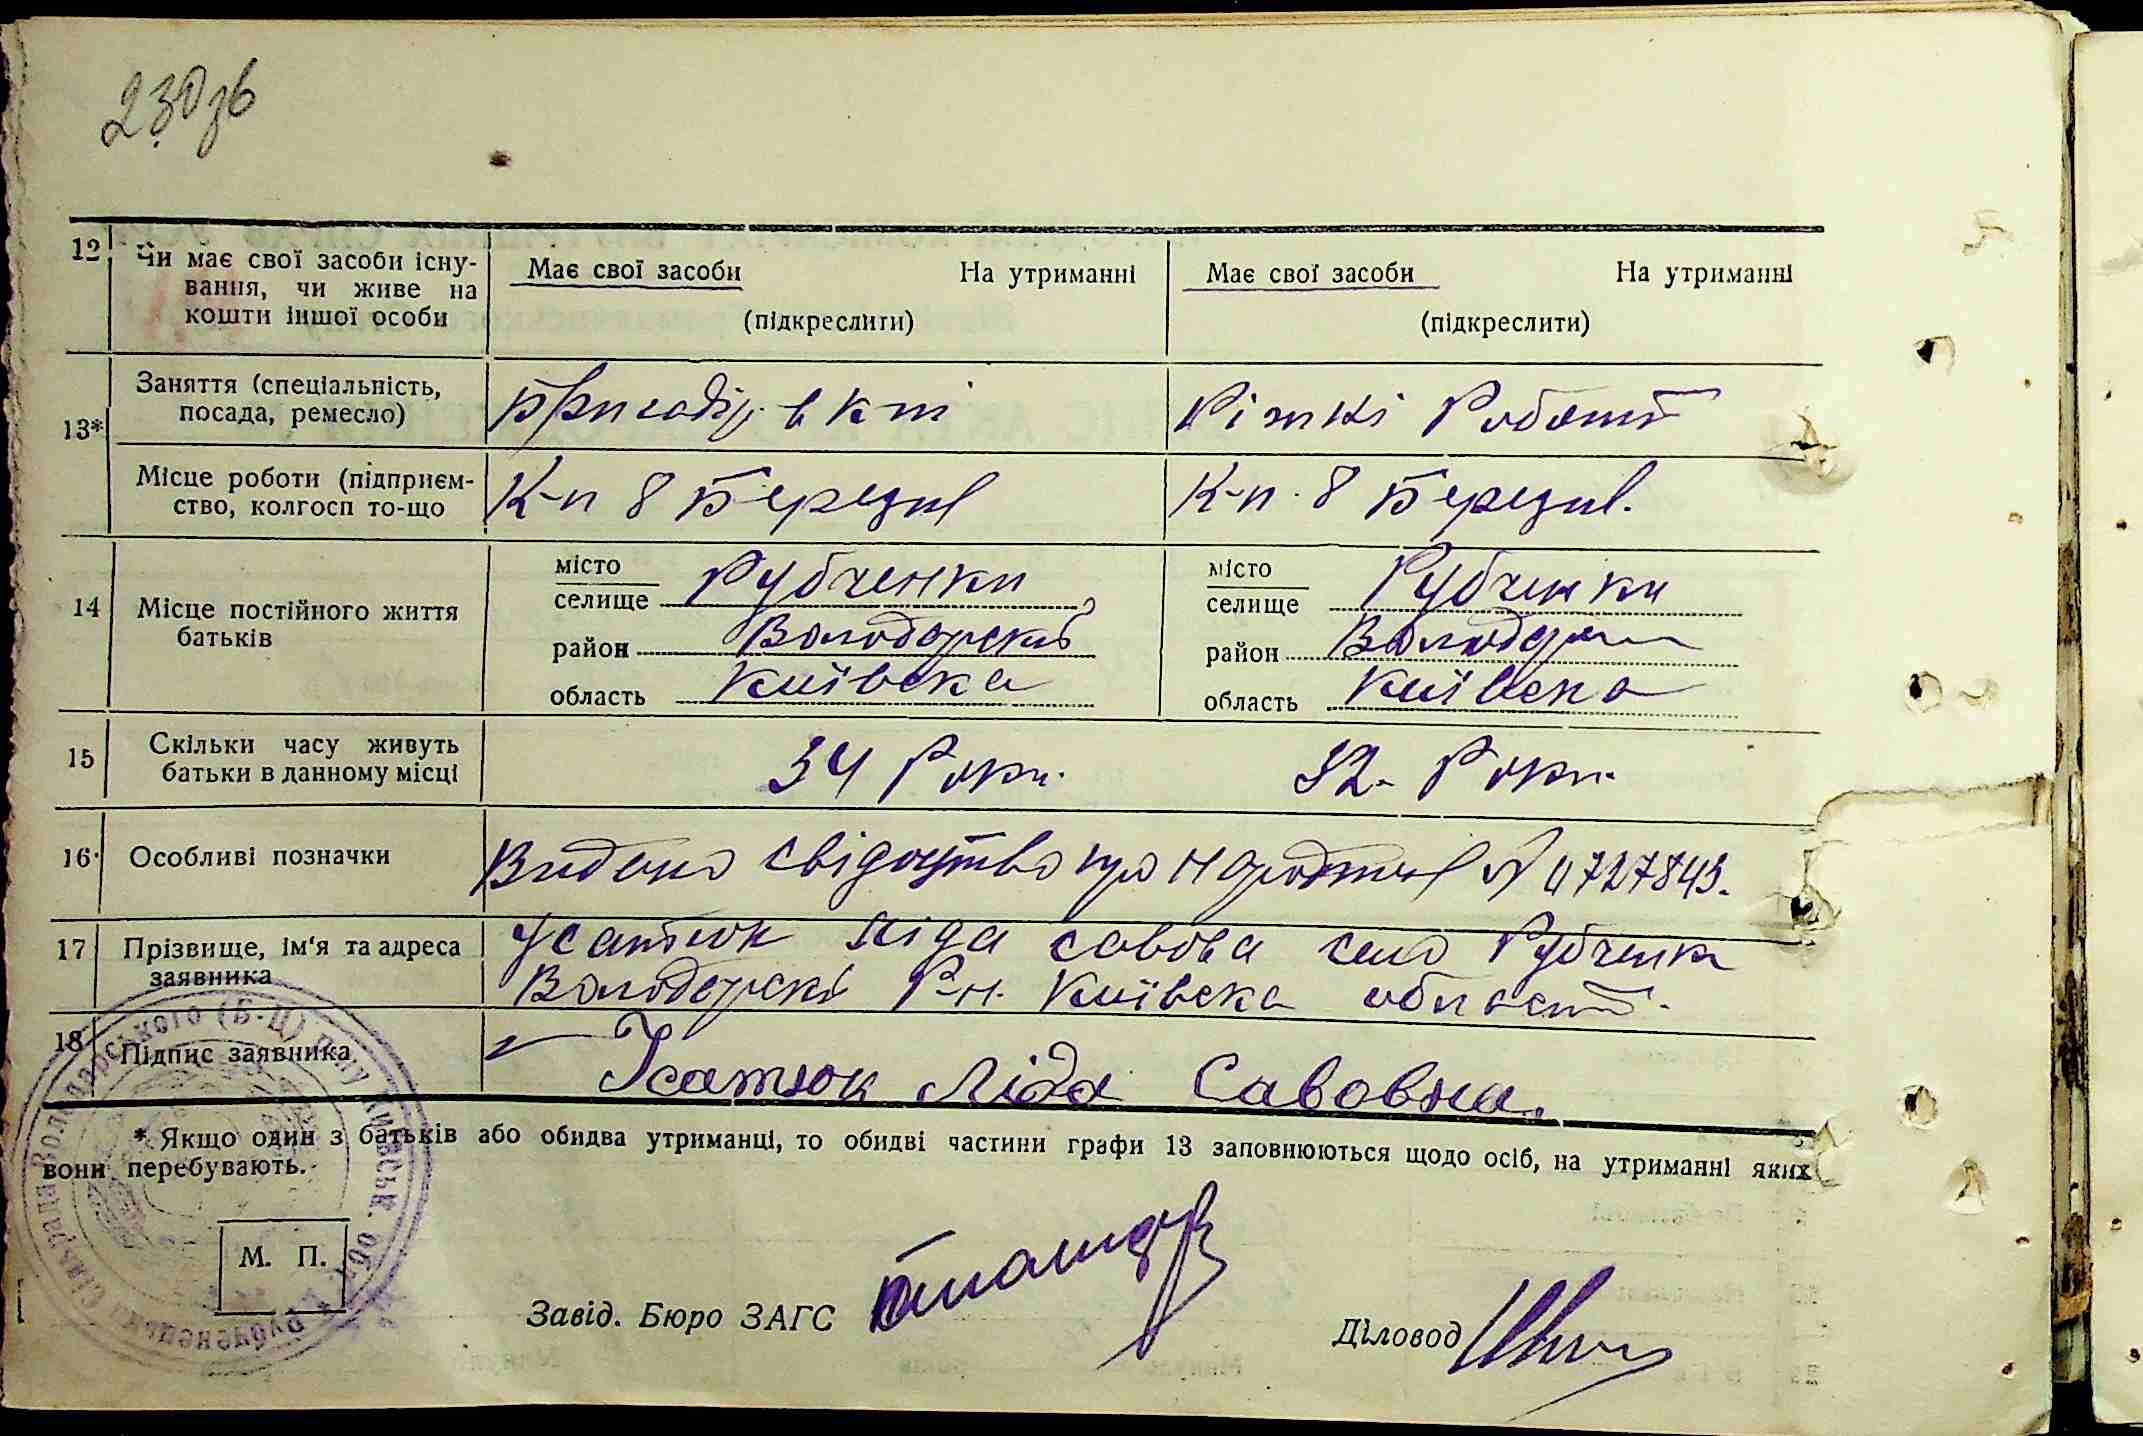 230зв
12 Чи має свої засоби існу-
вання, чи живе на
кошти іншої особи
Має свої засоби На утриманні
(підкреслити)
Має свої засоби На утриманні
(підкреслити)
13* Заняття (спеціальність,
посада, ремесло)
Бригадір в к-пі
Ріжні Робот
Місце роботи (підприєм-
ство, колгосп то-що
К-п 8 Березня
К-п. 8 Березня.
14 Місце постійного життя
батьків
місто
селище Рубченки
район Володарский
область Київска
місто
селище Рубченки
район Володар
область Київска
15 Скільки часу живуть
батьки в данному місці
34 Роки.
32 - Роки.
16 Особливі позначки
Видано свідоцтво про народження № 0727843.
17 Прізвище, ім'я та адреса
заявника
Усатюк Ліда Савовна село Рубченки
Володарский Р-н. Київска област.
18 Підпис заявника
Усатюк Ліда Савовна.
* Якщо один з батьків або обидва утриманці, то обидві частини графи 13 заповнюються щодо осіб, на утриманні яких
вони перебувають.
М. П.
Завід. Бюро ЗАГС
Діловод